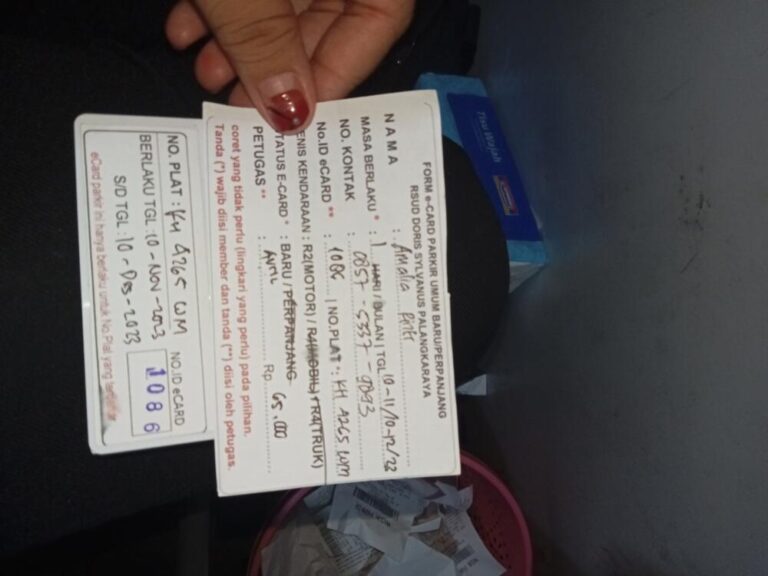 FORM e-CARD PARKIR UMUM BARU/PERPANJANG
RSUD DORIS SYLVANUS PALANGKARAYA
NAMA : Amalia
MASA BERLAKU * : 1 HARI / BULAN | TGL 10-11/10-12/23
NO. KONTAK : 0857-5337-9093
No.ID eCARD ** : 1086 | NO.PLAT *: KH 4265 WM
JENIS KENDARAAN : R2(MOTOR) / R4(MOBIL) / R4(TRUK)
STATUS E-CARD * : BARU / PERPANJANG
PETUGAS ** : AVRIL Rp 65.000
coret yang tidak perlu (lingkari yang perlu) pada pilihan.
Tanda (*) wajib diisi member dan tanda (**) diisi oleh petugas.
NO. PLAT : KH 4265 WM NO.ID eCARD
BERLAKU TGL : 10 - NOV - 2023 1086
S/D TGL : 10 - DES - 2023
eCard parkir ini hanya berlaku untuk No.Plat yang
Tisu Wajah